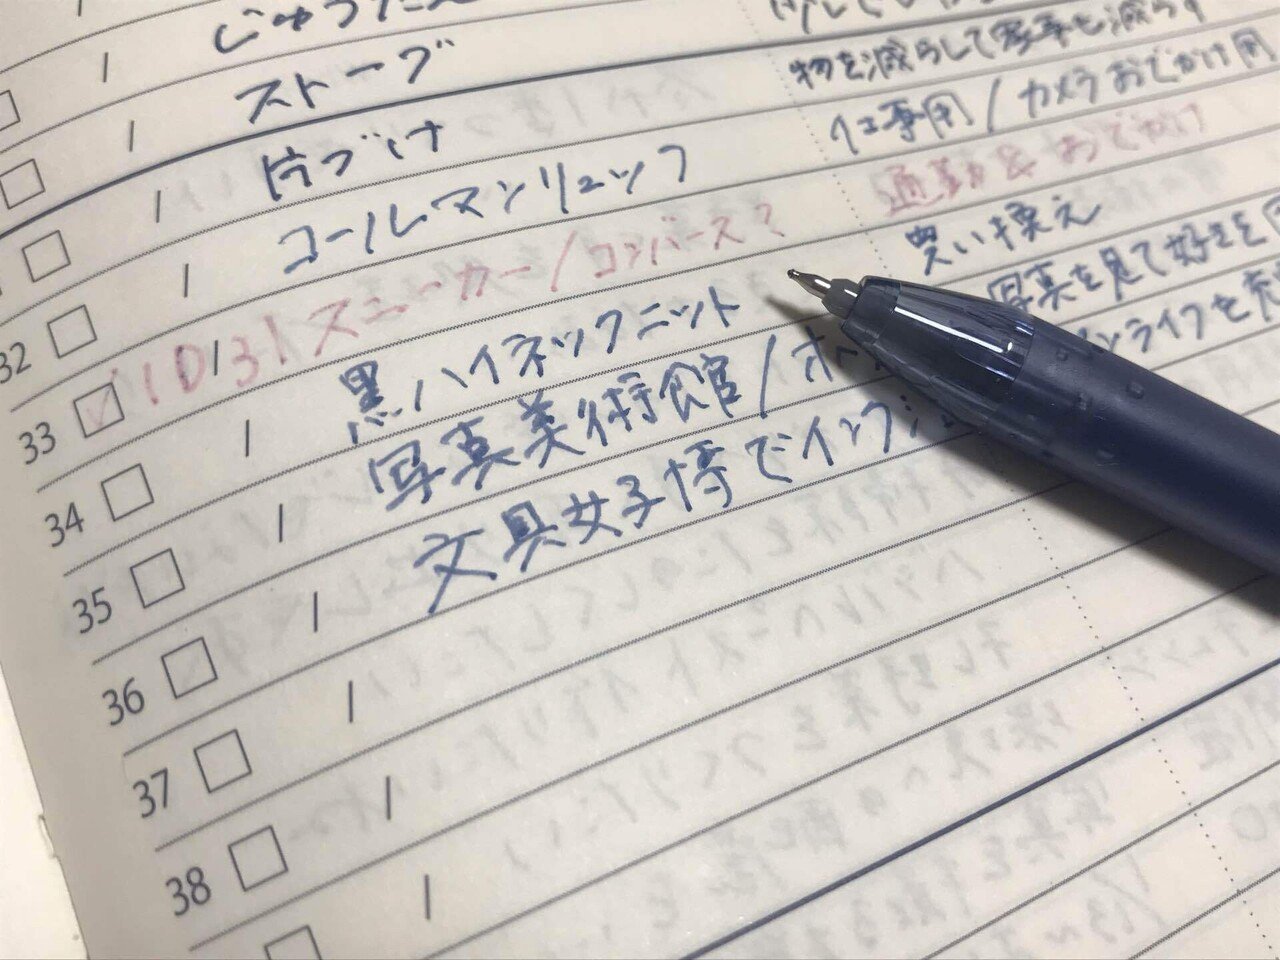 じゅうたん
ストーブ
片づけ 物を減らして家事も減らす
コールマンリュック 仕事用/カメラおでかけ用
32
33 10/31 スニーカー/コンバース? 通勤&おでかけ
34 黒ハイネックニット 買い換え
35 写真美術館/ 写真を見て好きを
36 文具女子博でインク ライフを充
37
38